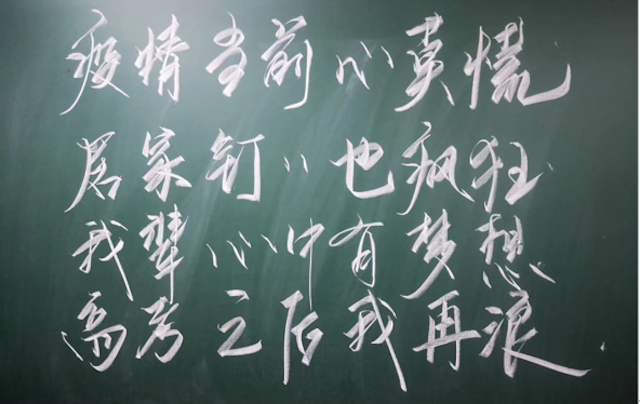 疫情当前心莫慌
居家钉钉也疯狂
我辈心中有梦想
高考之后我再浪